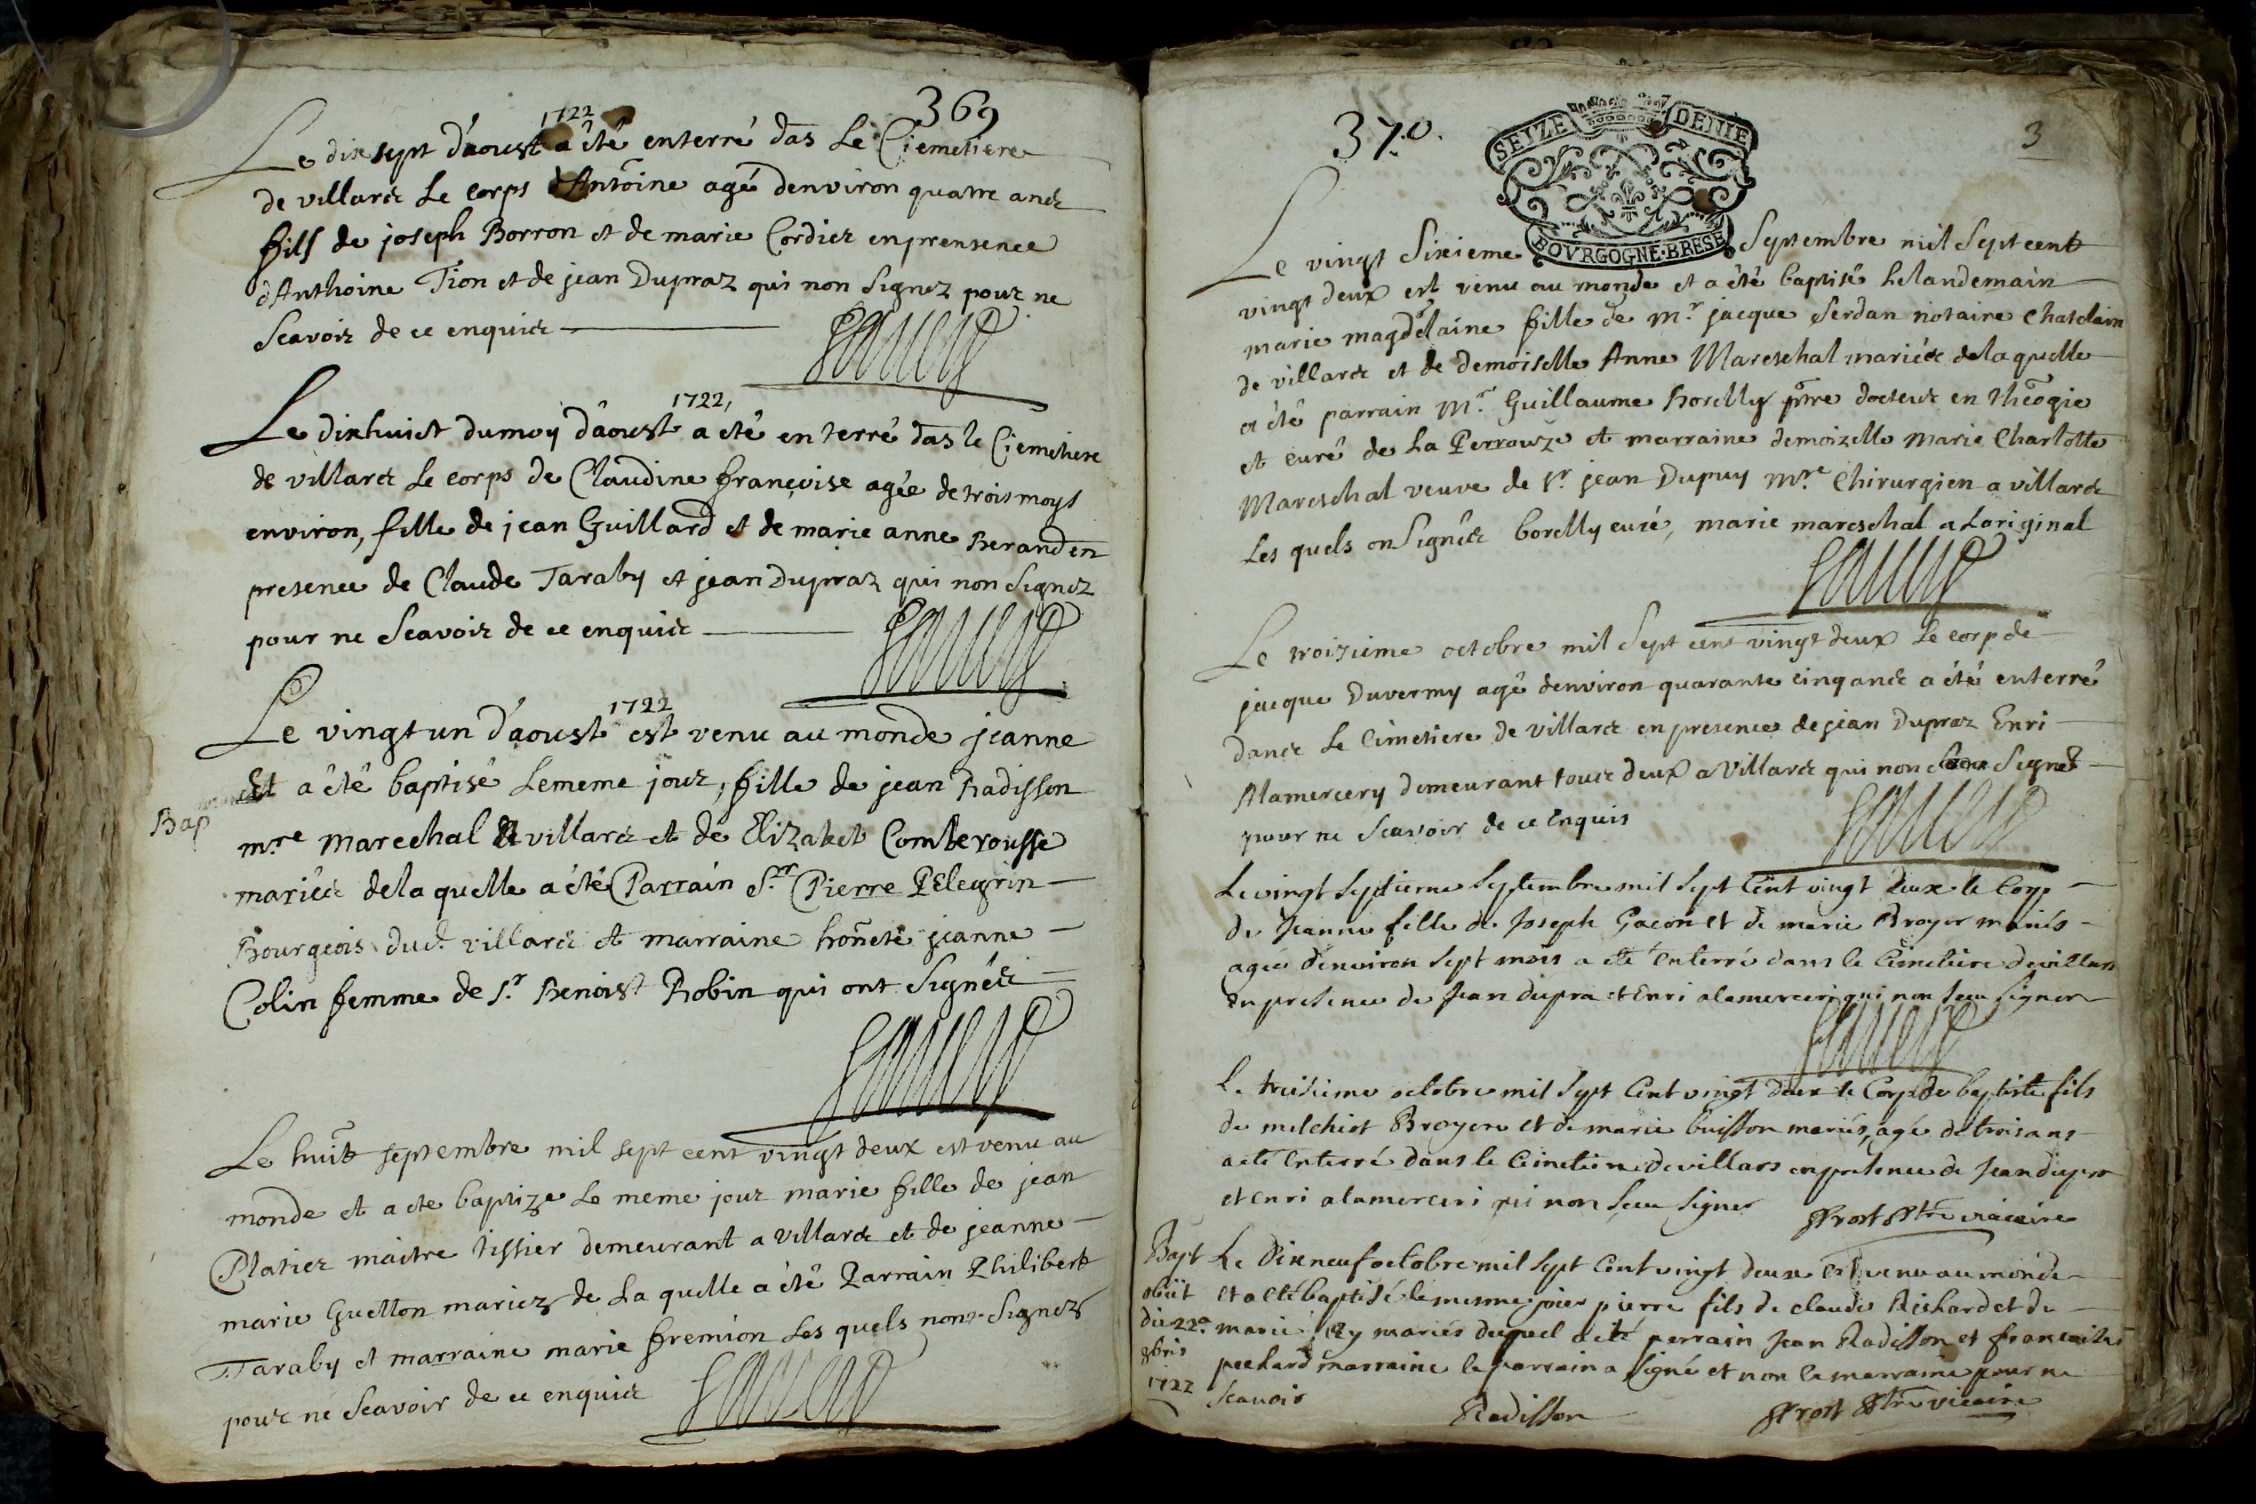 369
1722
Le dix sept d'aoust a été enterré das le Ciemetiere
de villars le corps d'Antoine agé denviron quatre ans
fils de joseph Borron et de marie Cordier en prensence
d'Anthoine Tion et de jean Dupraz qui non signez pour ne
scavoir de ce enquis
1722,
Le dixhuict du moy d'aoust a eté enterré das le Ciemetiere
de villars le corps de Claudine françoise agée de trois moys
environ, fille de jean Guillard et de marie anne Berand en
presence de Claude Taraby et jean Dupraz qui non signez
pour ne scavoir de ce enquis
1722
Le vingt un d'aoust est venu au monde jeanne
Et a été baptisé le meme jour, fille de jean Radisson
Bap
mre marechal a villars et de Elizabet Comberousse
mariés de la quelle a été Parrain Sr Pierre Pelegrin
Bourgeois dud. villars et marraine honete jeanne
Colin femme de Sr Benoist Robin qui ont signés
Le huit septembre mil sept cent vingt deux est venu au
monde et a ete baptize le meme jour marie fille de jean
Platier maitre tissier demeurant a villars et de jeanne
marie Guetton mariez de la quelle a été Parrain Philibert
Taraby et marraine marie fremion les quels nont signez
pour ne scavoir de ce enquis
370.
3
SEIZE DENIE
BOVRGOGNE·BRESE
Le vingt sixieme septembre mil sept cent
vingt deux est venu au monde et a été baptisé le landemain
marie magdelaine fille de mr jacque Serdan notaine chatelain
de villars et de demoiselle Anne Mareschal mariés de la quelle
a été parrain mr Guillaume Borelly ptre docteur en theogie
et curé de La Perrouze et marraine demoizelle marie Charlotte
Mareschal veuve de sr jean Dupuy mre Chirurgien a villars
les quels on signés borelly curé, marie mareschal a loriginal
Le troizieme octobre mil sept cent vingt deux le corp de
jacque Duvermy agé denviron quarante cinq ans a été enterré
dans le cimetiere de villars en presence de jean Dupraz Enri
Alamercery demeurant tous deux a villars qui non signez
pour ne scavoir de ce enquis
Le vingt septieme septembre mil sept cent vingt deux le corp
de Jeanne fille de Joseph Gacon et de marie Broyer mariés
agée denviron sept mois a eté enterré dans le cimetiere de villars
en presence de Jean dupra et Enri alamerceri qui non sceu signer
Le troisieme octobre mil sept cent vingt deux le corp de baptiste fils
de melchiot Broyer et de marie buisson mariés, agé de trois ans
a eté enterré dans le cimetiere de villars en presence de Jean dupra
et enri alamerceri qui non sceu signer
Prost ptre vicaire
Bapt
obiit
die 22a
8bris
1722
Le dix neuf octobre mil sept cent vingt deux est venu au monde
et a eté baptisé le mesme jour pierre fils de claude Richard et de
marie Rey mariés duquel a eté parrain Jean Radisson et francoise
pechard marraine le parrain a signé et non la marraine pour ne
scavoir
Radisson
Prost ptre vicaire